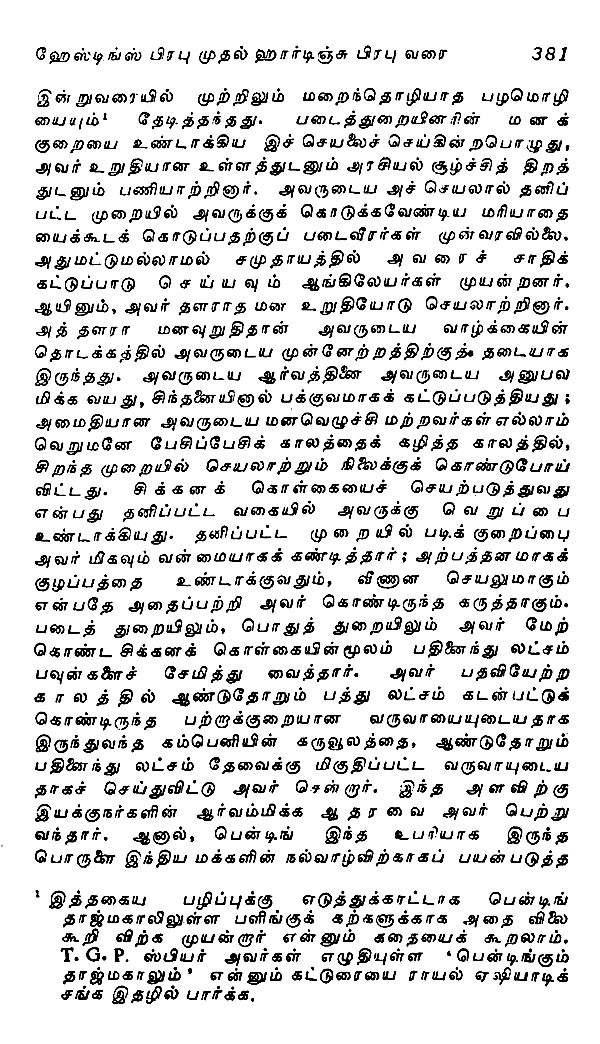 ஹேஸ்டிங்ஸ் பிரபு முதல் ஹார்டிஞ்சு பிரபு வரை 381
இன்றுவரையில் முற்றிலும் மறைந்தொழியாத பழமொழி
யையும்¹ தேடித்தந்தது. படைத்துறையினரின் மனக்
குறையை உண்டாக்கிய இச் செயலைச் செய்கின்றபொழுது,
அவர் உறுதியான உள்ளத்துடனும் அரசியல் சூழ்ச்சித் திறத்
துடனும் பணியாற்றினார். அவருடைய அச் செயலால் தனிப்
பட்ட முறையில் அவருக்குக் கொடுக்கவேண்டிய மரியாதை
யைக்கூடக் கொடுப்பதற்குப் படைவீரர்கள் முன்வரவில்லை.
அதுமட்டுமல்லாமல் சமுதாயத்தில் அவரைச் சாதிக்
கட்டுப்பாடு செய்யவும் ஆங்கிலேயர்கள் முயன்றனர்.
ஆயினும், அவர் தளராத மன உறுதியோடு செயலாற்றினார்.
அத் தளரா மனவுறுதிதான் அவருடைய வாழ்க்கையின்
தொடக்கத்தில் அவருடைய முன்னேற்றத்திற்குத் தடையாக
இருந்தது. அவருடைய ஆர்வத்தினை அவருடைய அனுபவ
மிக்க வயது, சிந்தனையினால் பக்குவமாகக் கட்டுப்படுத்தியது;
அமைதியான அவருடைய மனவெழுச்சி மற்றவர்கள் எல்லாம்
வெறுமனே பேசிப்பேசிக் காலத்தைக் கழித்த காலத்தில்,
சிறந்த முறையில் செயலாற்றும் நிலைக்குக் கொண்டுபோய்
விட்டது. சிக்கனக் கொள்கையைச் செயற்படுத்துவது
என்பது தனிப்பட்ட வகையில் அவருக்கு வெறுப்பை
உண்டாக்கியது. தனிப்பட்ட முறையில் படிக் குறைப்பை
அவர் மிகவும் வன்மையாகக் கண்டித்தார்; அற்பத்தனமாகக்
குழப்பத்தை உண்டாக்குவதும், வீணான செயலுமாகும்
என்பதே அதைப்பற்றி அவர் கொண்டிருந்த கருத்தாகும்.
படைத் துறையிலும், பொதுத் துறையிலும் அவர் மேற்
கொண்ட சிக்கனக் கொள்கையின்மூலம் பதினைந்து லட்சம்
பவுன்களைச் சேமித்து வைத்தார். அவர் பதவியேற்ற
காலத்தில் ஆண்டுதோறும் பத்து லட்சம் கடன்பட்டுக்
கொண்டிருந்த பற்றாக்குறையான வருவாயையுடையதாக
இருந்துவந்த கம்பெனியின் கருவூலத்தை, ஆண்டுதோறும்
பதினைந்து லட்சம் தேவைக்கு மிகுதிப்பட்ட வருவாயுடைய
தாகச் செய்துவிட்டு அவர் சென்றார். இந்த அளவிற்கு
இயக்குநர்களின் ஆர்வம்மிக்க ஆதரவை அவர் பெற்று
வந்தார். ஆனால், பெண்டிங் இந்த உபரியாக இருந்த
பொருளை இந்திய மக்களின் நல்வாழ்விற்காகப் பயன்படுத்த
¹ இத்தகைய பழிப்புக்கு எடுத்துக்காட்டாக பெண்டிங்
தாஜ்மகாலிலுள்ள பளிங்குக் கற்களுக்காக அதை விலை
கூறி விற்க முயன்றார் என்னும் கதையைக் கூறலாம்.
T. G. P. ஸ்பியர் அவர்கள் எழுதியுள்ள 'பெண்டிங்கும்
தாஜ்மகாலும்' என்னும் கட்டுரையை ராயல் ஏஷியாடிக்
சங்க இதழில் பார்க்க.